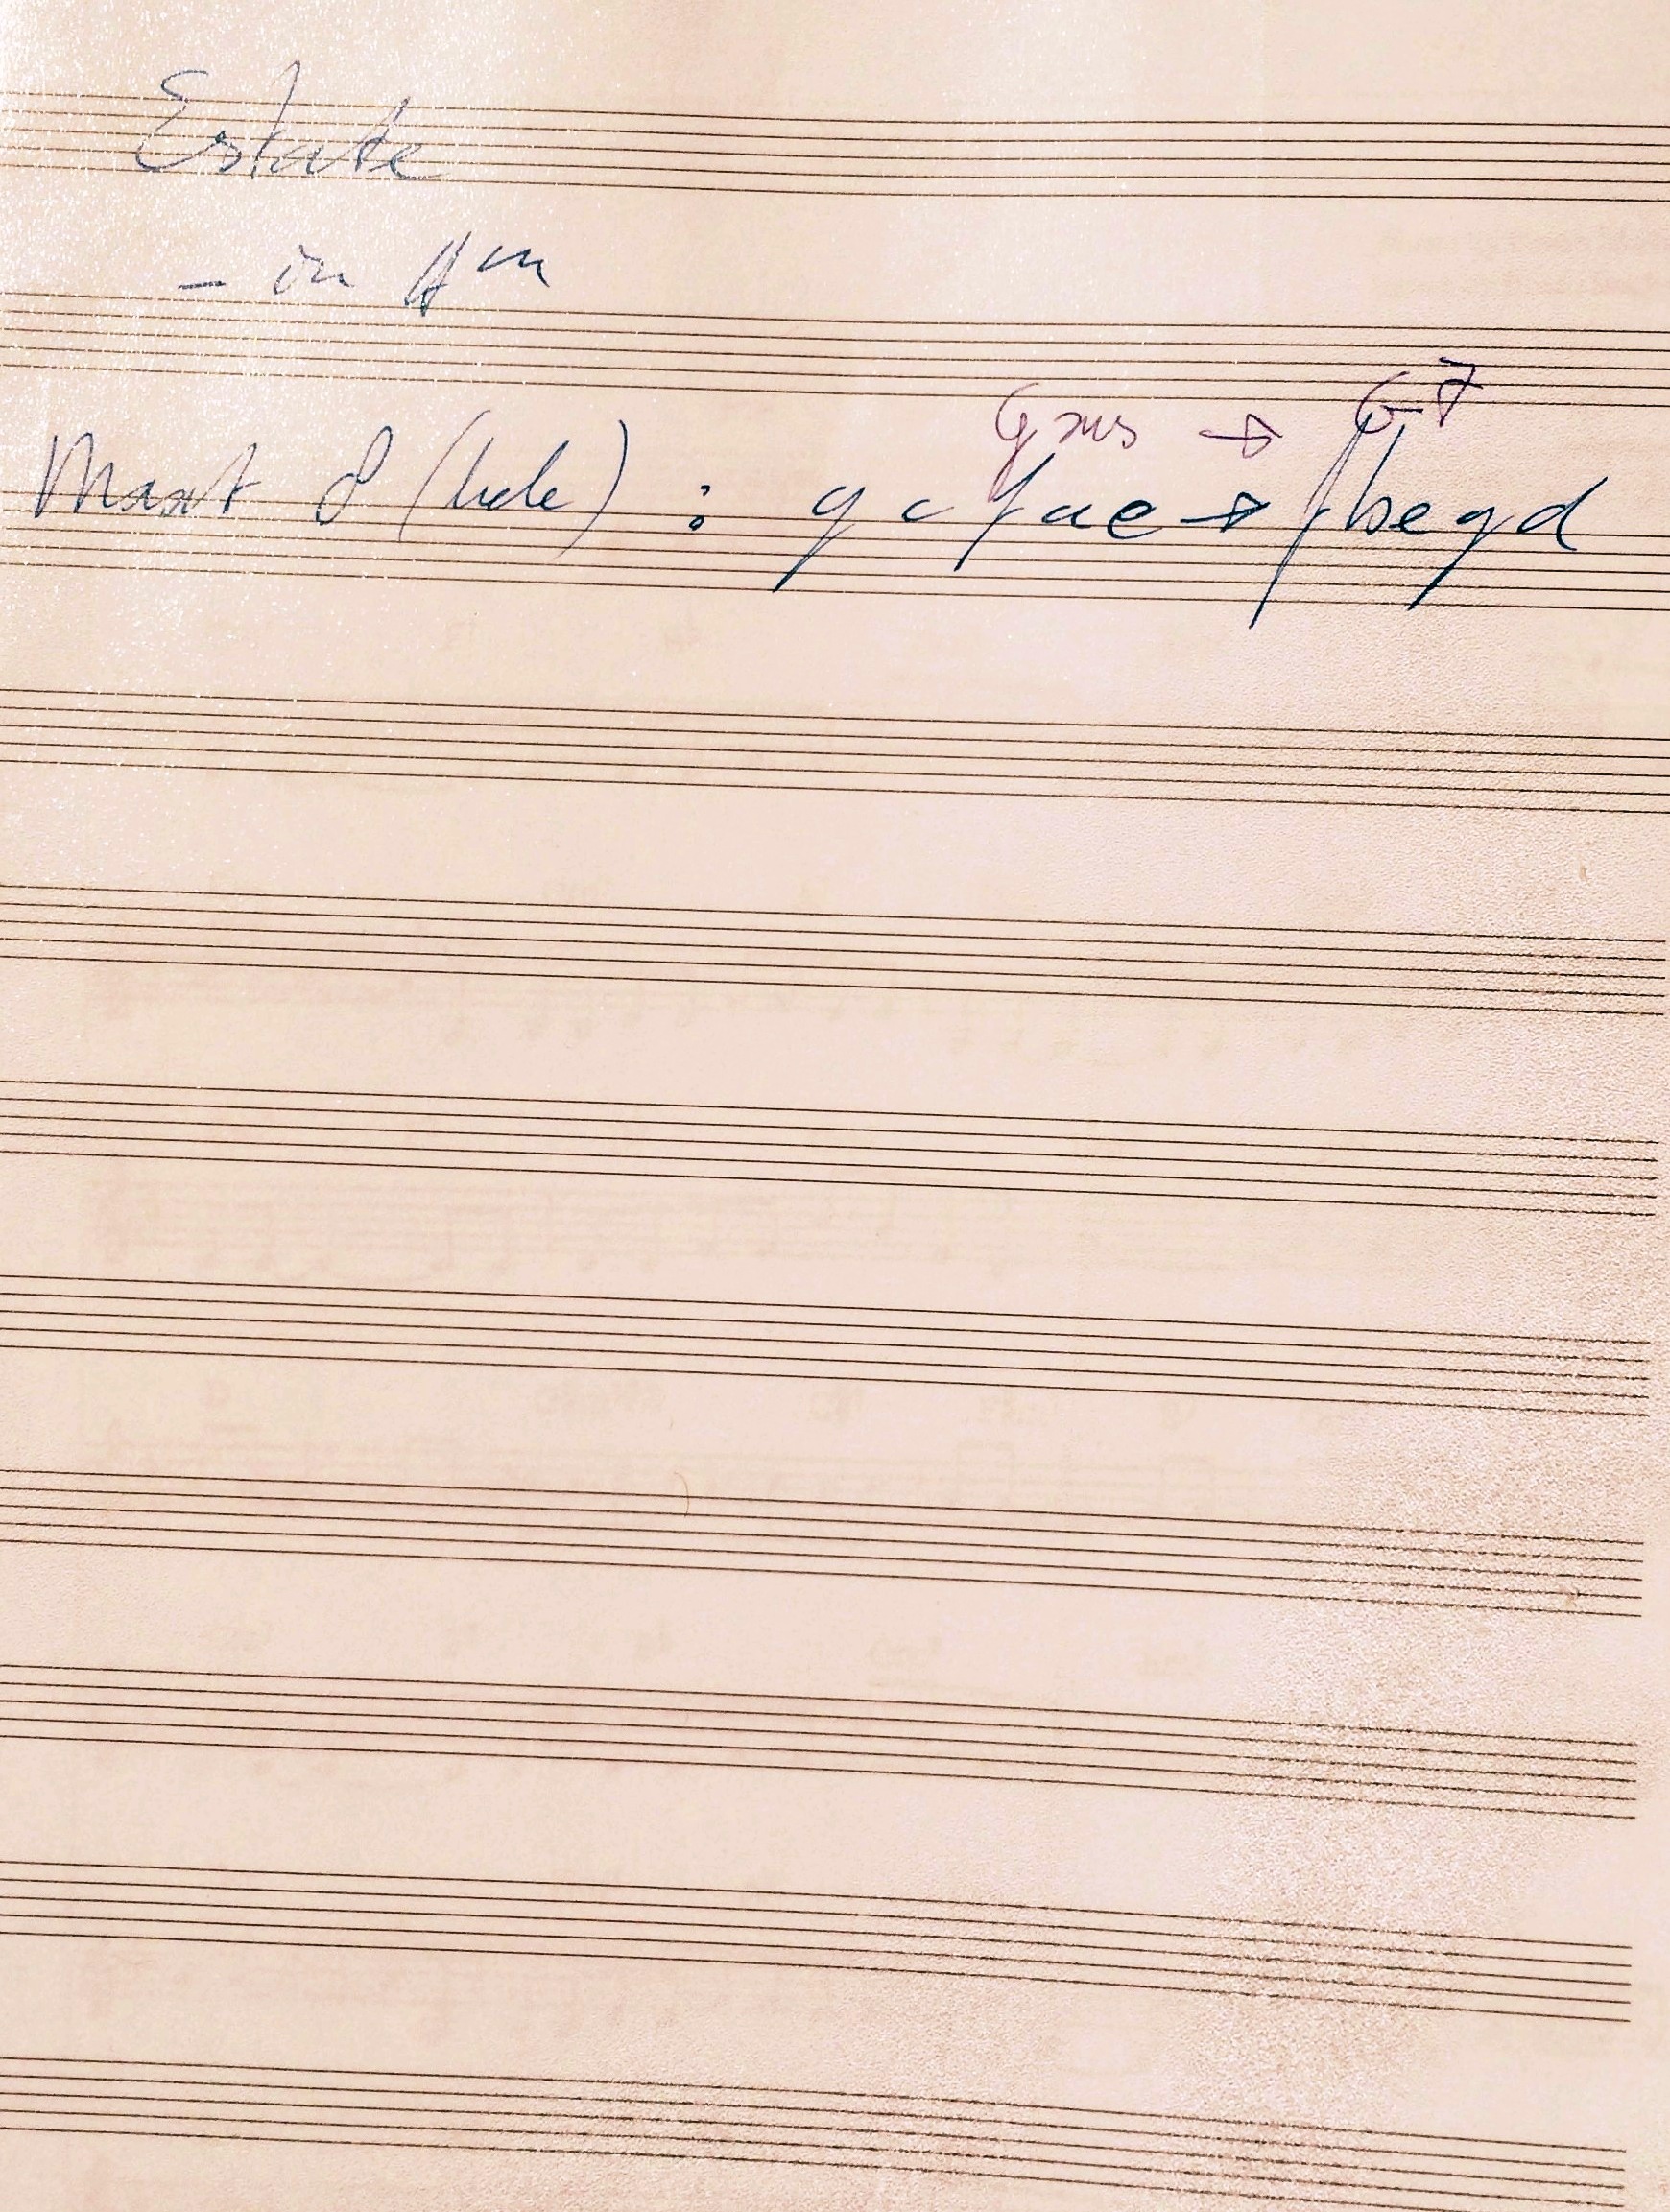 Estate
- in Am
Gsus → G7
Maat 8 (hele) : g c f a e → f b e g d